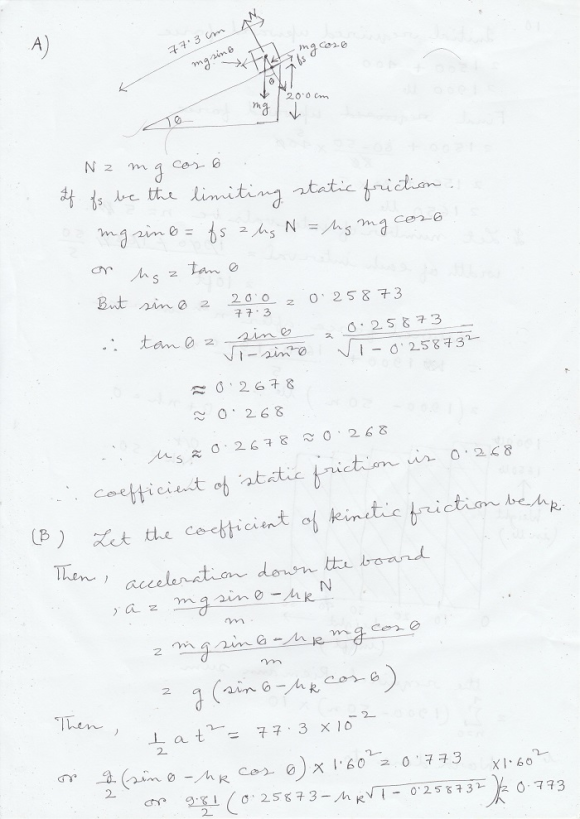 A)
77.3 cm
N
mg sinθ
mg cosθ
fs
θ
mg
20.0 cm
θ
N = m g cos θ
If fs be the limiting static friction
mg sin θ = fs = μs N = μs mg cos θ
or μs = tan θ
But sin θ = 20.0/77.3 = 0.25873
∴ tan θ = sin θ/√(1-sin²θ) = 0.25873/√(1 - 0.25873²)
≈ 0.2678
≈ 0.268
∴ μs ≈ 0.2678 ≈ 0.268
∴ coefficient of static friction is 0.268
(B) Let the coefficient of kinetic friction be μk.
Then, acceleration down the board
, a = (mg sin θ - μk N)/m
= (mg sin θ - μk mg cos θ)/m
= g (sin θ - μk cos θ)
Then, 1/2 a t² = 77.3 × 10⁻²
or g/2 (sin θ - μk cos θ) × 1.60² = 0.773
or 9.81/2 (0.25873 - μk √(1 - 0.25873²)) × 1.60² = 0.773